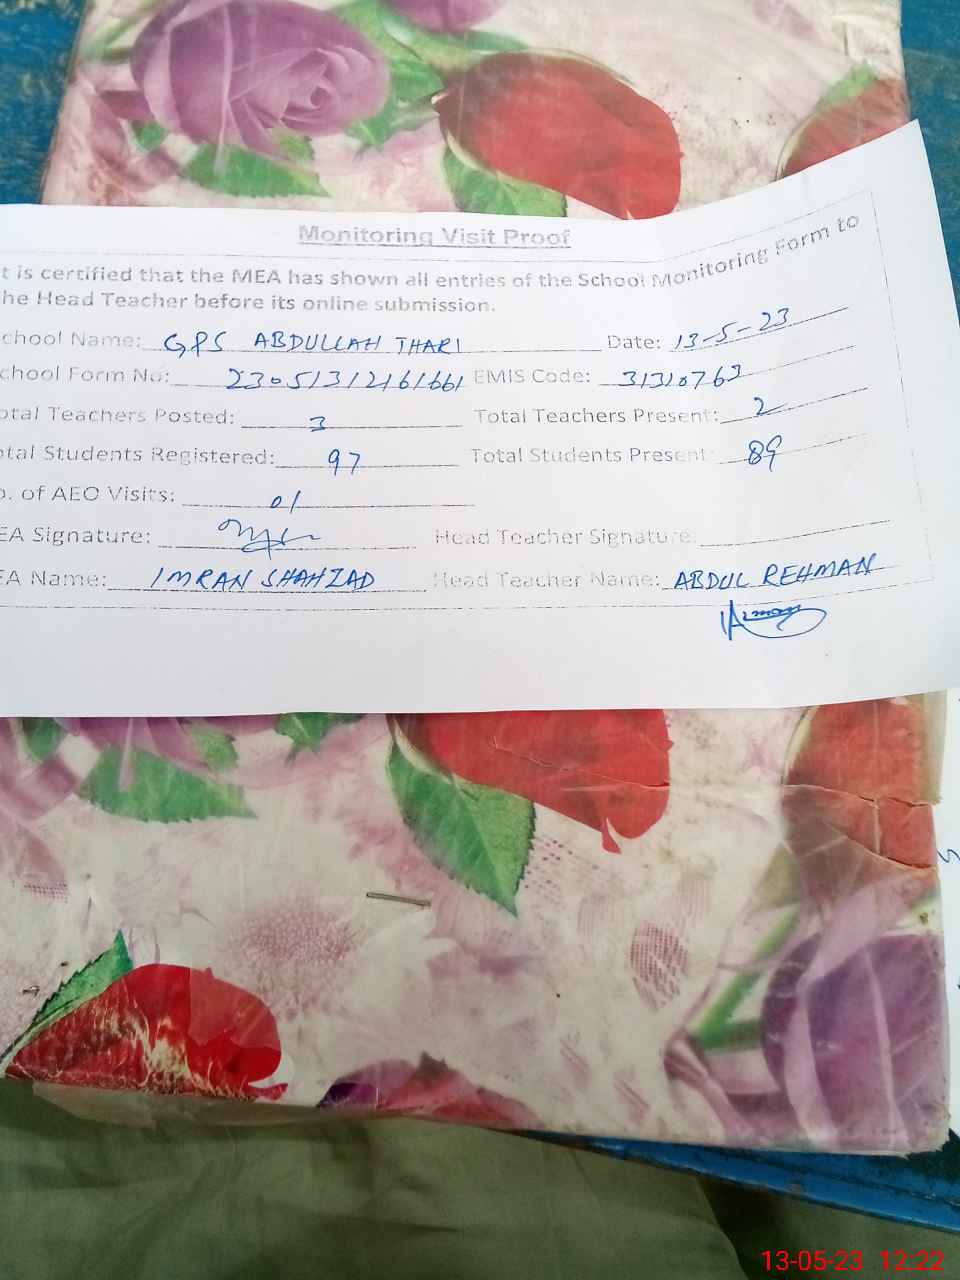 Monitoring Visit Proof
t is certified that the MEA has shown all entries of the School Monitoring Form to
he Head Teacher before its online submission.
chool Name: GPS ABDULLAH THARI Date: 13-5-23
chool Form No: 23051312161661 EMIS Code: 31310763
otal Teachers Posted: 3 Total Teachers Present: 2
otal Students Registered: 97 Total Students Present: 89
o. of AEO Visits: 01
EA Signature: Head Teacher Signature:
EA Name: IMRAN SHAHZAD Head Teacher Name: ABDUL REHMAN
13-05-23 12:22